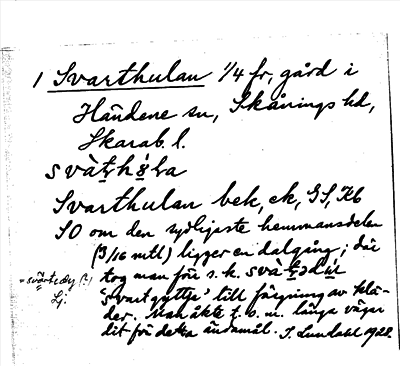 1 Svarthulan 1/4 fr, gård i
Händene sn, Skånings hd,
Skarab. l.
svàṯhu̱la
Svarthulan bek, ek, GS, Kb
SO om den sydligaste hemmansdelen
(3/16 mtl) ligger en dalgång; där
tog man förr s. k. svàṯədy̱
"svartgyttja" till färgning av klä-
der. Man åkte t. o. m. långa vägar
dit för detta ändamål. J. Lundahl 1928.
= svartedy (?)
Lj.